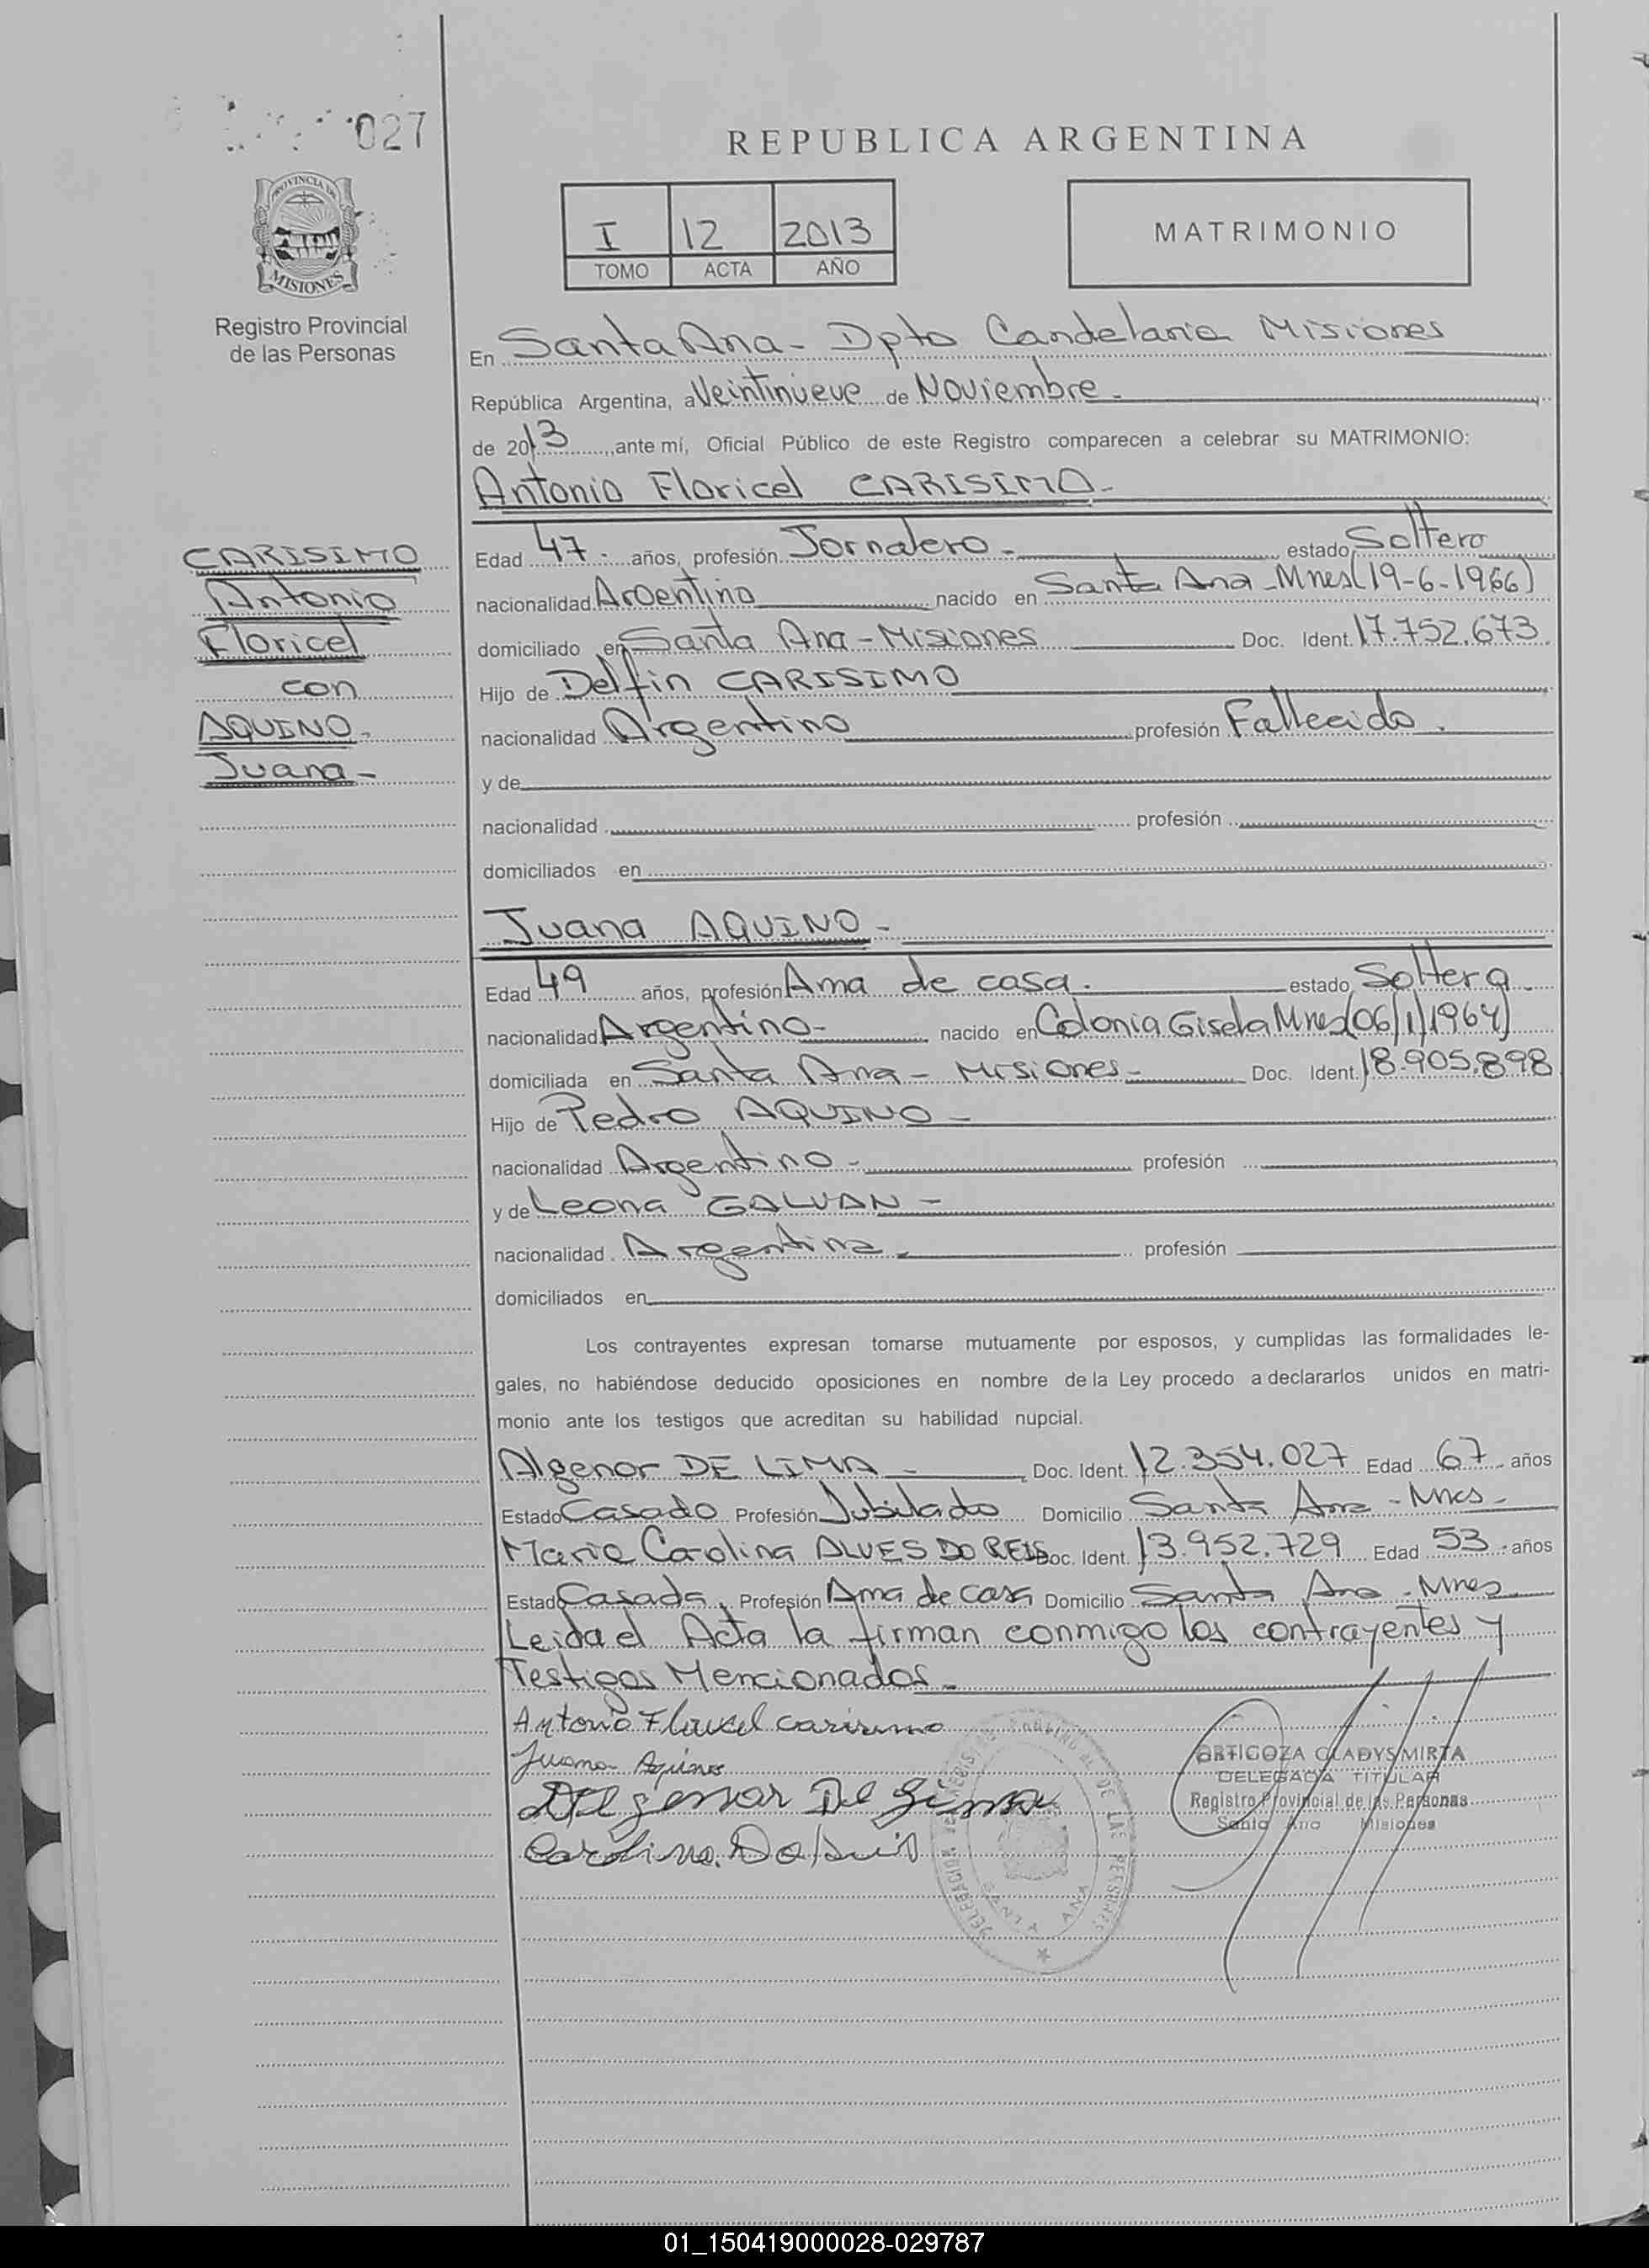 027
PROVINCIA DE
MISIONES
Registro Provincial
de las Personas
REPUBLICA ARGENTINA
I 12 2013
TOMO ACTA AÑO
MATRIMONIO
En Santa Ana - Dpto Candelaria Misiones
República Argentina, a Veintinueve de Noviembre.
de 2013 ante mí, Oficial Público de este Registro comparecen a celebrar su MATRIMONIO:
Antonio Floricel CARISIMO-
CARISIMO
Antonio
Floricel
con
AQUINO-
Juana-
Edad 47- años, profesión Jornalero- estado Soltero
nacionalidad Argentino nacido en Santa Ana-Mnes(19-6-1966)
domiciliado en Santa Ana-Misiones Doc. Ident. 17.752.673
Hijo de Delfin CARISIMO
nacionalidad Argentino profesión Fallecido.
y de
nacionalidad profesión
domiciliados en
Juana AQUINO-
Edad 49 años, profesión Ama de casa. estado Soltera.
nacionalidad Argentino- nacido en Colonia Gisela Mnes(06/1/1964)
domiciliada en Santa Ana- Misiones- Doc. Ident. 18.905.898
Hijo de Pedro AQUINO-
nacionalidad Argentino- profesión
y de Leona GALVAN-
nacionalidad Argentina- profesión
domiciliados en
Los contrayentes expresan tomarse mutuamente por esposos, y cumplidas las formalidades le-
gales, no habiéndose deducido oposiciones en nombre de la Ley procedo a declararlos unidos en matri-
monio ante los testigos que acreditan su habilidad nupcial.
Algenor DE LIMA- Doc. Ident. 12.354.027 Edad 67 años
Estado Casado Profesión Jubilado Domicilio Santa Ana-Mnes-
Maria Carolina ALVES DO REIS Doc. Ident. 13.952.729 Edad 53- años
Estado Casada Profesión Ama de casa Domicilio Santa Ana-Mnes
Leida el Acta la firman conmigo los contrayentes y
Testigos Mencionados-
Antonio Floricel carisimo
Juana Aquino
Algenor De Lima
Carolina Do
ORTIGOZA GLADYS MIRTA
DELEGADA TITULAR
Registro Provincial de las Personas
Santa Ana Misiones
DE LAS PERSONAS
SANTA ANA
01_150419000028-029787